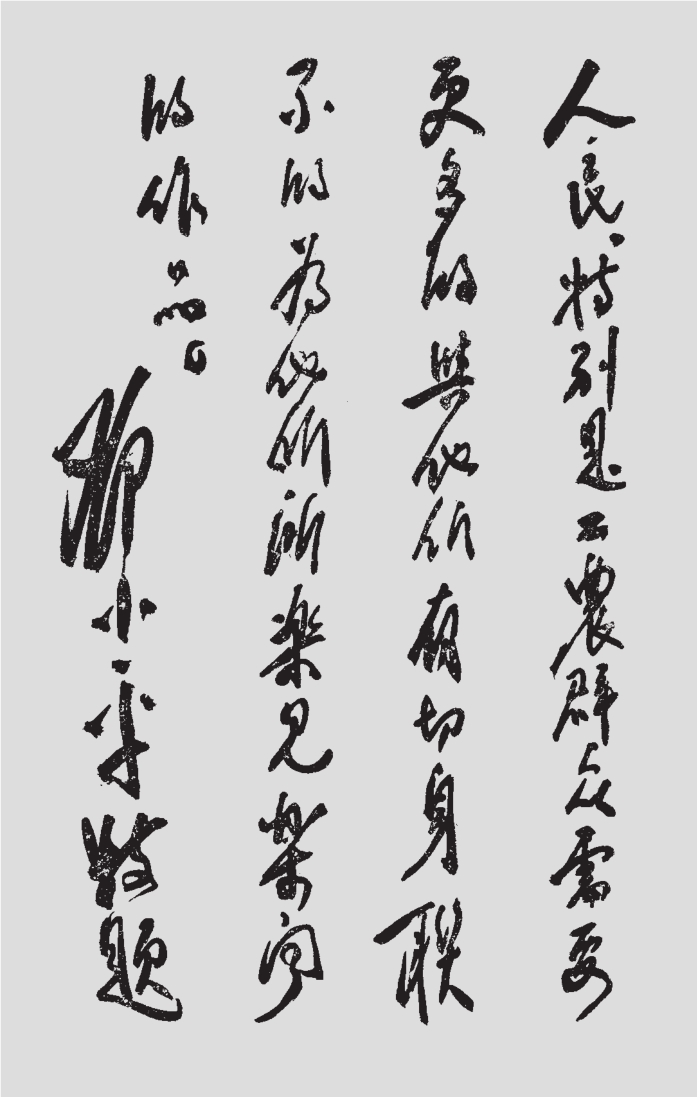 人民，特别是工农群众需要
更多的与他们有切身联
系的为他们所乐见乐闻
的作品。
邓小平敬题